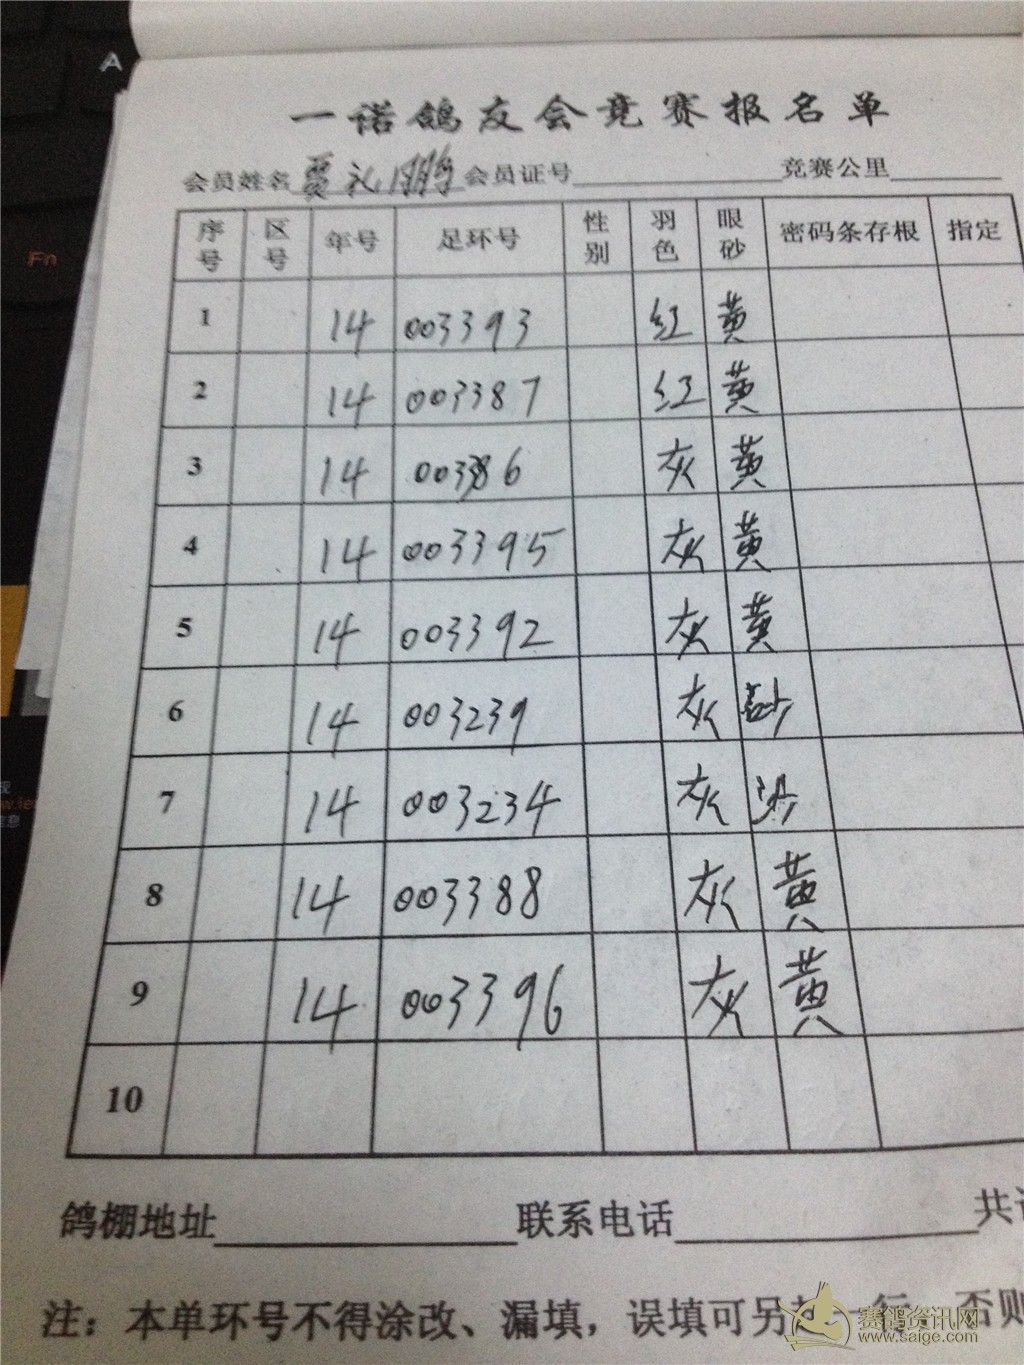 A
一诺鸽友会竞赛报名单
会员姓名 贾礼鹏 会员证号 竞赛公里
Fn
序号 区号 年号 足环号 性别 羽色 眼砂 密码条存根 指定
1 14 003393 红 黄
2 14 003387 红 黄
3 14 003386 灰 黄
4 14 003395 灰 黄
5 14 003392 灰 黄
6 14 003239 灰 砂
7 14 003234 灰 沙
8 14 003388 灰 黄
9 14 003396 灰 黄
10
鸽棚地址 联系电话 共
注：本单环号不得涂改、漏填，误填可另 行 否则
赛鸽资讯网
www.saige.com